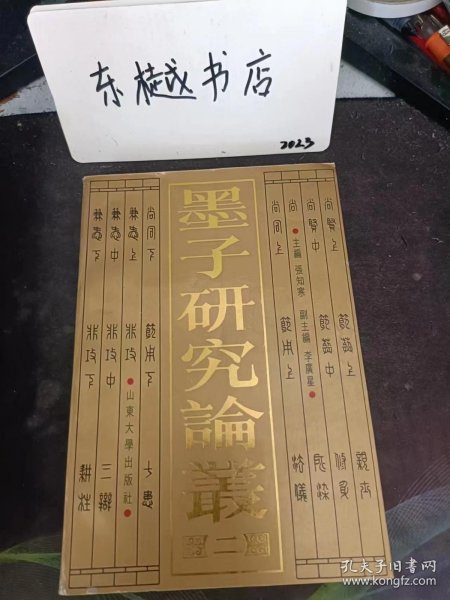 东樾书店
2023
墨子研究論叢
二
尚賢上
尚賢中
尚同上
●主編 張知寒 副主編 李廣星●
節葬上
節葬中
節用上
親士
修身
所染
法儀
尚同下
兼愛上
兼愛中
兼愛下
節用下
非攻
非攻中
非攻下
●山東大學出版社●
七患
三辯
耕柱
孔夫子旧书网
www.kongfz.com